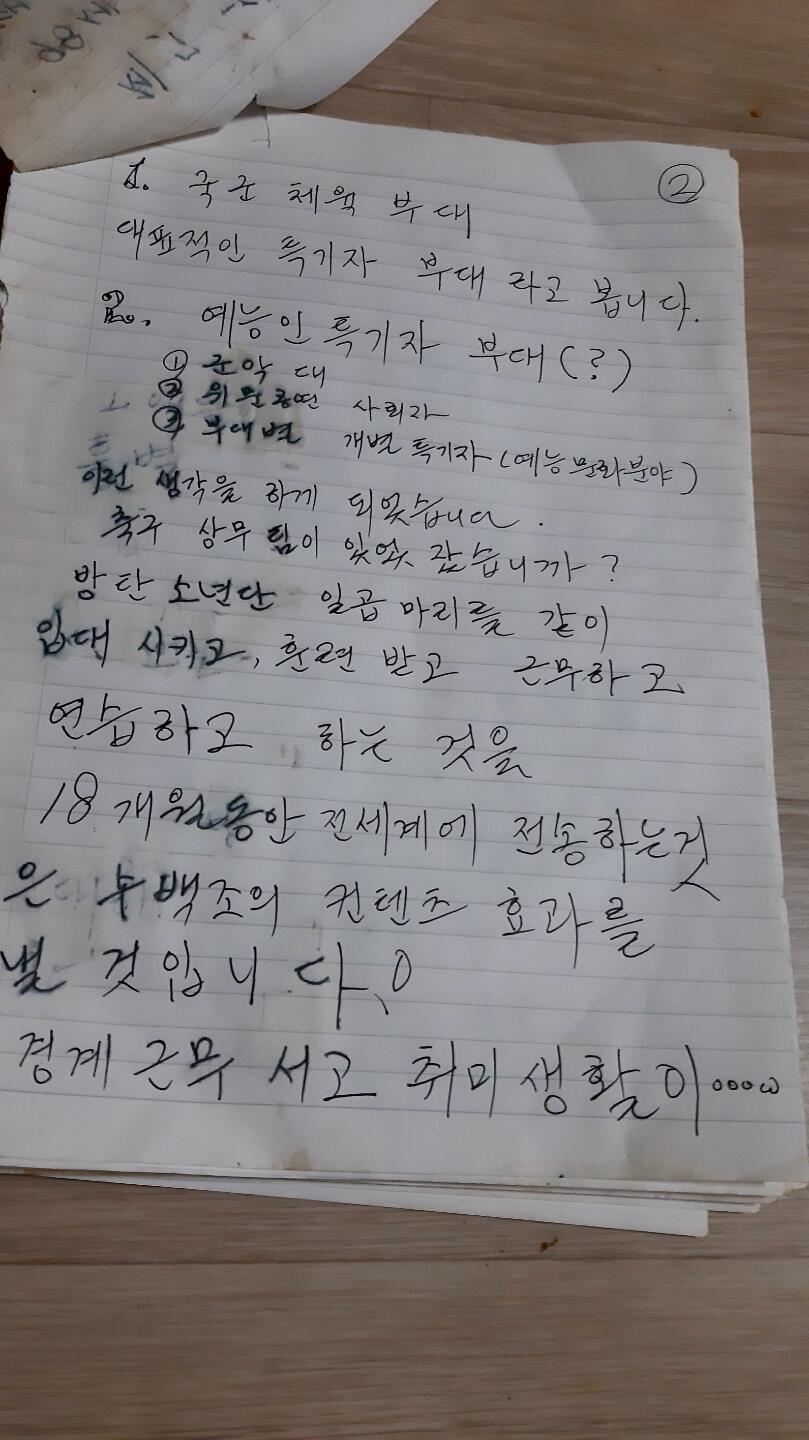 ②
1. 국군 체육 부대
대표적인 특기자 부대 라고 봅니다.
2. 예능인 특기자 부대(?)
① 군악대
② 위문공연 사회자
③ 부대별 개별 특기자(예능 문화분야)
이런 생각을 하게 되었습니다.
축구 상무 팀이 있었 잖습니까?
방탄 소년단 일곱 마리를 같이
입대 시키고, 훈련 받고 근무하고,
연습하고 하는 것을
18개월동안 전세계에 전송하는것
은 수백조의 컨텐츠 효과를
낼 것입니다.
경계 근무 서고 취미생활이